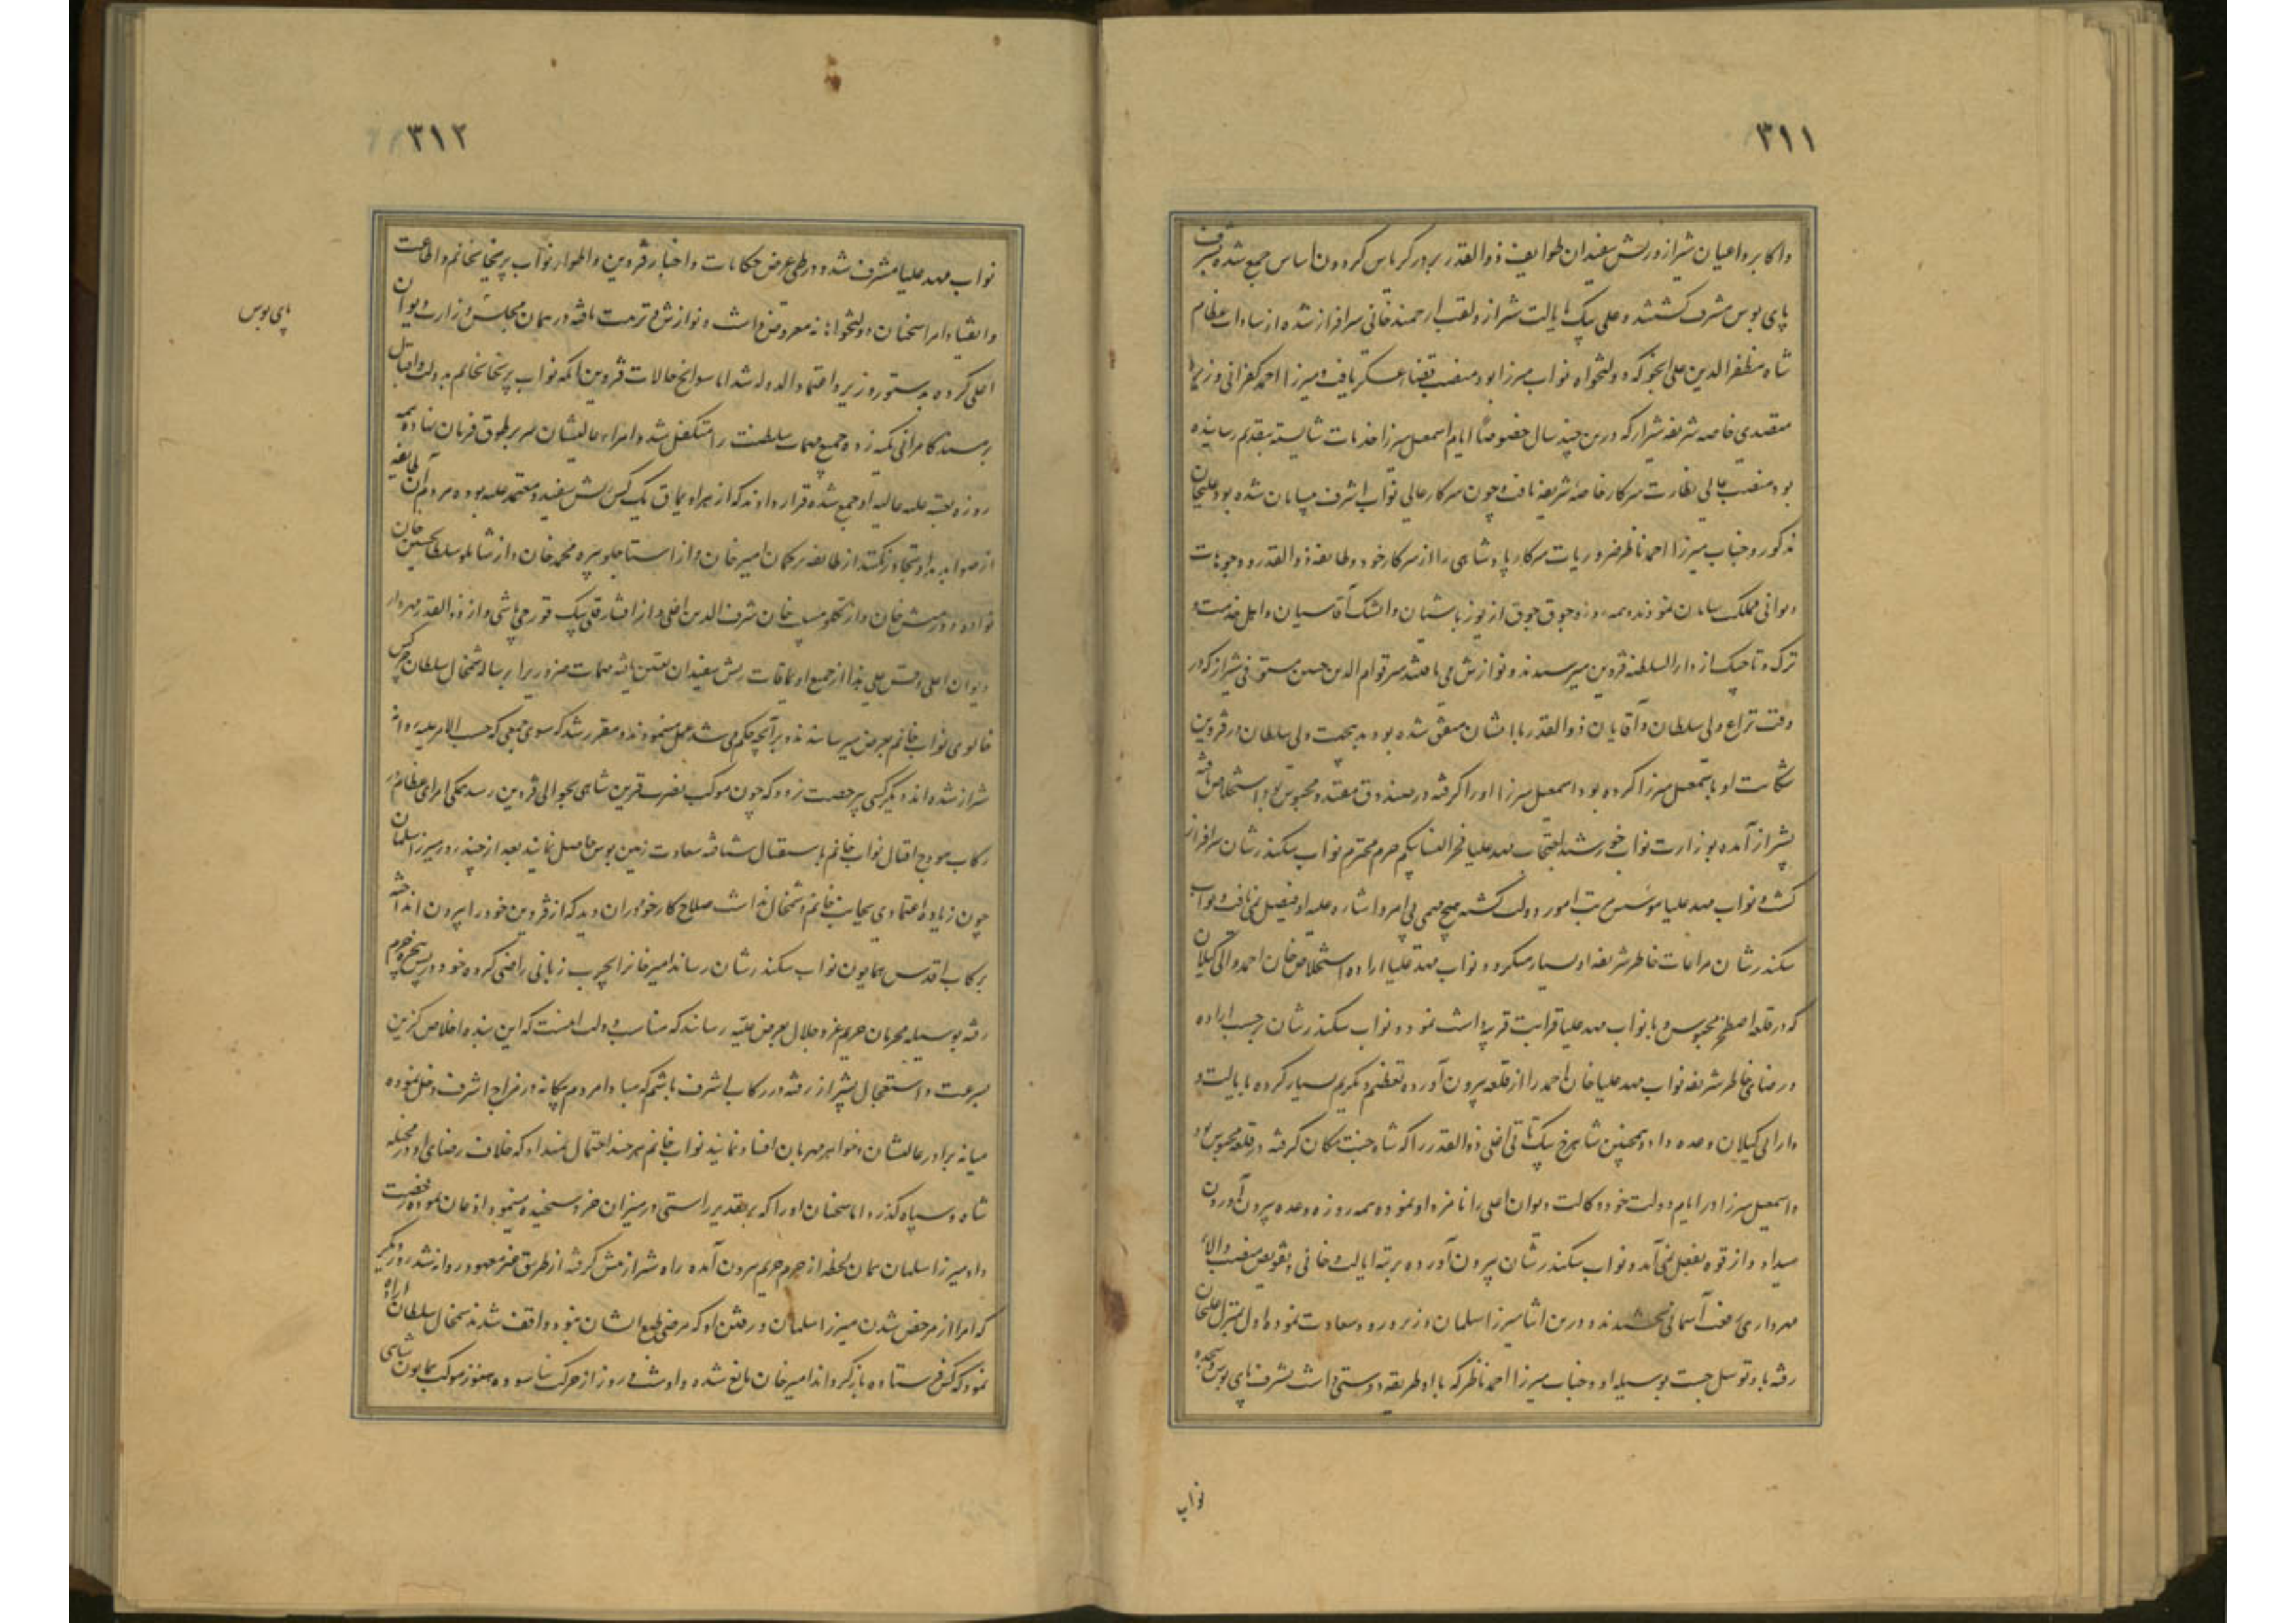 ۳۱۱
واکابر و اعیان شیراز و ریش سفیدان طوایف ذوالقدر بر در کریاس کردون اساس جمع شده بشرف
پای بوس مشرف کشتند و علی بیک بایالت شیراز و لقب ارجمند خانی سرافراز شده از سادات عظام
شاه مظفرالدین علی انجو که دولتخواه نواب میرزا بود منصب قضاء عسکر یافت و میرزا احمد کفرانی وزیر
متصدی خاصه شریفه شیراز که درین چند سال خصوصاً ایام اسمعیل میرزا خدمات شایسته بتقدیم رسانیده
بود منصب عالی نظارت سرکار خاصه شریفه یافت و چون سرکار عالی نواب اشرف بیسامان شده بود علیخان
مذکور و جناب میرزا احمد ناظر ضروریات سرکار پادشاهی را از سرکار خود و طایفه ذوالقدر و وجوهات
دیوانی مملکت سامان نمودند و همه روزه جوق جوق از یوزباشیان و ایشک آقاسیان و اهل خدمت و
ترک و تاجیک از دارالسلطنه قزوین میرسیدند و نوازش می یافتند میر قوام الدین حسین مستوفی شیراز که در
وقت نزاع ولی سلطان و آقایان ذوالقدر با ایشان متفق شده بود بدینجهت ولی سلطان در قزوین
شکایت او باسمعیل میرزا کرده بود و اسمعیل میرزا او را کرفته در صندوق مقید و محبوس بود استخلاص یافته
بشیراز آمده بوزارت نواب خورشید احتجاب مهد علیا فخرالنسا بیکم حرم محترم نواب سکندرشان سرافراز
کشت و نواب مهد علیا مؤسس مرتب امور دولت کشته هیچ مهمی بی امر و اشاره علیه او فیصل نمی یافت و نواب
سکندرشان مراعات خاطر شریفه او بسیار میکرد و نواب مهد علیا اراده استخلاص خان احمد والی کیلان
که در قلعه اصطخر محبوس و با نواب مهد علیا قرابت قریبه داشت نمود و نواب سکندرشان برحسب اراده
و رضای خاطر شریفه نواب مهد علیا خان احمد را از قلعه بیرون آورده تعظیم و تکریم بسیار کرده بایالت و
دارائی کیلان وعده داد و همچنین شاهرخ بیک تاتی اغلی ذوالقدر را که شاه جنت مکان کرفته در قلعه محبوس بود
و اسمعیل میرزا در ایام دولت خود وکالت دیوان اعلی را نامزد او نموده همه روزه وعده بیرون آوردن
میداد و از قوه بفعل نمی آمد و نواب سکندرشان بیرون آورده برتبه ایالت و خانی و تفویض منصب والاء
مهرداری رفعت آسمانی بخشیدند و درین اثنا میرزا سلمان وزیر ورود سعادت نموده اول بمنزل علیخان
رفته باو توسل جست بوسیله او و جناب میرزا احمد ناظر که با او طریقه دوستی داشت بشرف پای بوس و سجده
نواب
۳۱۲
نواب مهد علیا مشرف شده در طی عرض حکایات و اخبار قزوین و اطوار نواب پریخانخانم و اطاعت
و انقیاد امرا سخنان دولتخواهانه معروض داشت و نوازش و تربیت یافته در همان مجلس وزارت دیوان
اعلی کرده بدستور وزیر و اعتمادالدوله شد اما سوانح حالات قزوین آنکه نواب پریخانخانم بدولت و اقبال
بر مسند کامرانی تکیه زده جمیع مهمات سلطنت را متکفل شد و امراء عالیشان سر بر طوق فرمان نهاده همه
روزه بعتبه علیه عالیه او جمع شده قرار دادند که از هر اویماق یک کس ریش سفید و معتمد علیه بوده مردم آن طایفه
از صوابدید او تجاوز نکنند از طایفه ترکمان امیرخان و از استاجلو پیره محمد خان و از شاملو سلطان حسین خان
نواده دورمیش خان و از تکلو مسیب خان شرف الدین اغلی و از افشار قلی بیک قورچی باشی و از ذوالقدر مهردار
دیوان اعلی و قس علی هذا از جمیع اویماقات ریش سفیدان تعیین یافته مهمات ضروریرا برساله شمخال سلطان چرکس
خالوی نواب خانم بعرض میرسانیدند و برآنچه حکم می شد عمل مینمودند و مقرر شد که سوی جمعی که حسب الامر علیه روانه
شیراز شده اند دیکر کسی بیرخصت نرود که چون موکب نصرت قرین شاهی بحوالی قزوین رسد همکی امرای عظام در
رکاب هودج اقبال نواب خانم باستقبال شتافته سعادت زمین بوس حاصل نمایند بعد از چند روز میرزا سلمان
چون زیاده اعتمادی بجانب خانم و شمخال نداشت صلاح کار خود در آن دید که از قزوین خود را بیرون انداخته
برکاب اقدس همایون نواب سکندرشان رساند امیرخانرا بچرب زبانی راضی کرده خود در پس پنجره حرم
رفته بوسیله محرمان حریم عز و جلال بعرض علیه رساند که مناسب دولت آنست که این بنده اخلاص کزین
بسرعت و استعجال بشیراز رفته در رکاب اشرف باشم که مبادا مردم بیکانه در مزاج اشرف دخل نموده
میانه برادر عالیشان و خواهر مهربان افساد نمایند نواب خانم هرچند احتمال نمیداد که خلاف رضای او در مخیله
شاه و سپاه کذرد اما سخنان او را که بر تقدیر راستی در میزان خرد سنجیده مینمود اذعان نموده رخصت
داد میرزا سلمان همان لحظه از حرم حریم بیرون آمده راه شیراز پیش کرفته از طریق غیر معهود روانه شد روز دیکر
که امرا از مرخص شدن میرزا سلمان و رفتن او که مرضی طبع ایشان نبود واقف شدند شمخال سلطان اراده
نمود که کس فرستاده بازکرداند امیرخان مانع شده و او شب و روز از حرکت نیاسوده هنوز موکب همایون شاهی
پای بوس